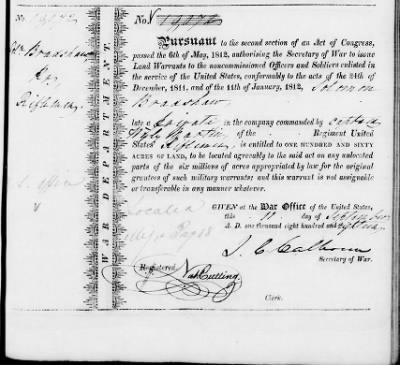 No.
Pursuant to the second section of an Act of Congress,
passed the 6th of May, 1812, authorising the Secretary of War to issue
Land Warrants to the noncommissioned Officers and Soldiers enlisted in
the service of the United States, conformably to the acts of the 24th of
December, 1811, and of the 11th of January, 1812, Solomon
Bradshaw
late a Private in the company commanded by Captain
Martin of the Regiment United
States' Riflemen, is entitled to ONE HUNDRED AND SIXTY
ACRES OF LAND, to be located agreeably to the said act on any unlocated
parts of the six millions of acres appropriated by law for the original
grantees of such military warrants; and this warrant is not assignable
or transferable in any manner whatever.
GIVEN at the War Office of the United States,
this 11 day of September
A. D. one thousand eight hundred and
J. C. Calhoun
Secretary of War.
Registered Nat Cutting
Clerk.
WAR DEPARTMENT.
Bradshaw
Riflemen
Located